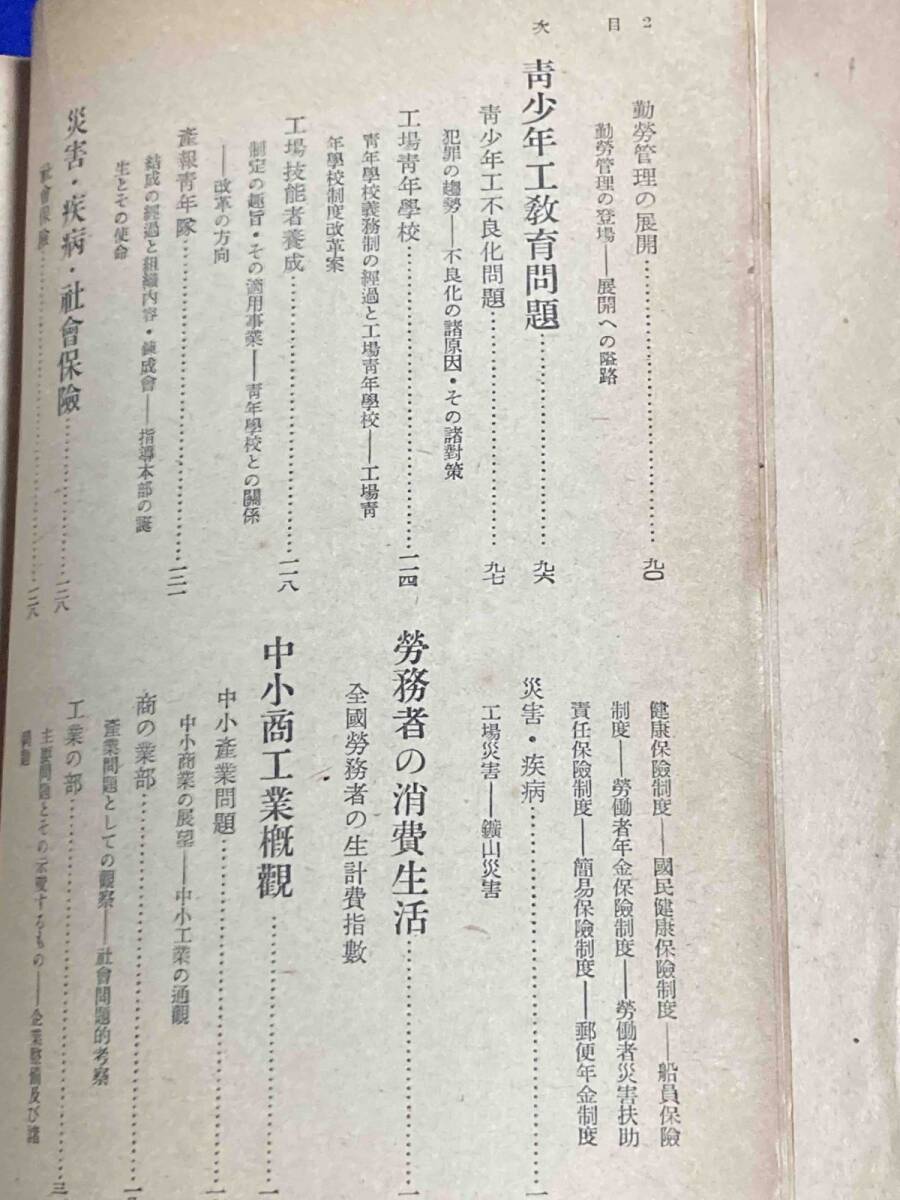 2
目次
勤勞管理の展開……九〇
勤勞管理の登場――展開への隘路
靑少年工敎育問題……九六
靑少年工不良化問題……九七
犯罪の趨勢――不良化の諸原因・その諸對策
工場靑年學校……一一四
靑年學校義務制の經過と工場靑年學校――工場靑
年學校制度改革案
工場技能者養成……一一八
制定の趣旨・その適用事業――靑年學校との關係
――改革の方向
產報靑年隊……一二一
結成の經過と組織內容・鍊成會――指導本部の誕
生とその使命
災害・疾病・社會保險……一二八
社會保險……一二八
健康保險制度――國民健康保險制度――船員保險
制度――勞働者年金保險制度――勞働者災害扶助
責任保險制度――簡易保險制度――郵便年金制度
災害・疾病……一
工場災害――鑛山災害
勞務者の消費生活……一
全國勞務者の生計費指數
中小商工業槪觀……一
中小產業問題……一
中小商業の展望――中小工業の通觀
商の業部……一
產業問題としての觀察――社會問題的考察
工業の部……
主要問題とその示唆するもの――企業整備及び諸
問題